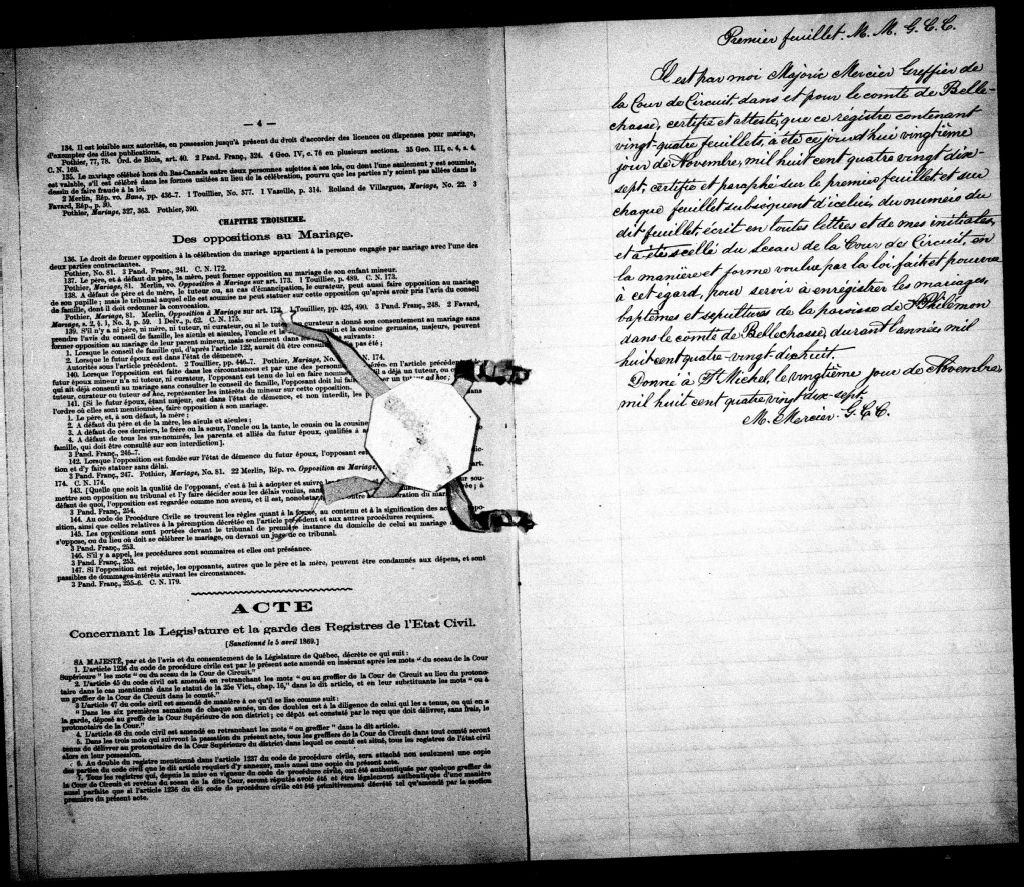 — 4 —
134. Il est loisible aux autorités, en possession jusqu'à présent du droit d'accorder des licences ou dispenses pour mariage,
d'exempter des dites publications.
Pothier, 77, 78. Ord. de Blois, art. 40. 2 Pand. Franç., 324. 4 Geo. IV, c. 76 en plusieurs sections. 35 Geo. III, c. 4, s. 4.
C. N. 169.
135. Le mariage célébré hors du Bas-Canada entre deux personnes sujettes à ses lois, ou dont l'une seulement y est soumise,
est valable, s'il est célébré dans les formes usitées au lieu de la célébration, pourvu que les parties n'y soient pas allées dans le
dessin de faire fraude à la loi.
2 Merlin, Rép. vo. Bans, pp. 436-7. 1 Touillier, No. 577. 1 Vazeille, p. 314. Rolland de Villargues, Mariage, No. 22. 3
Favard, Rép., p. 30.
Pothier, Mariage, 327, 363. Pothier, 390.
CHAPITRE TROISIEME.
Des oppositions au Mariage.
136. Le droit de former opposition à la célébration du mariage appartient à la personne engagée par mariage avec l'une des
deux parties contractantes.
Pothier, No. 81. 3 Pand. Franç., 241. C. N. 172.
137. Le père, et à défaut du père, la mère, peut former opposition au mariage de son enfant mineur.
Pothier, Mariage, 81. Merlin, vo. Opposition à Mariage sur art. 173. 1 Touillier, 489. C. N. 173.
138. A défaut de père et de mère, le tuteur ou, au cas d'émancipation, le curateur, peut aussi faire opposition au mariage
de son pupille; mais le tribunal auquel elle est soumise ne peut statuer sur cette opposition qu'après avoir pris l'avis du conseil
de famille, dont il doit ordonner la convocation.
Pothier, Mariage, 81. Merlin, Opposition à Mariage sur art. 173. 1 Touillier, pp. 425, 490. 3 Pand. Franç., 248. 2 Favard,
Mariage, s. 2, § 1, No. 3, p. 59. 1 Delv., p. 62. C. N. 175.
139. S'il n'y a ni père, ni mère, ni tuteur, ni curateur, ou si le tuteur curateur a donné son consentement au mariage sans
prendre l'avis du conseil de famille, les aieuls et aieules, l'oncle et la cousin et la cousine germains, majeurs, peuvent
former opposition au mariage de leur parent mineur, mais seulement dans les suivants:
1. Lorsque le conseil de famille qui, d'après l'article 122, aurait dû être consulté pas été;
2. Lorsque le futur époux est dans l'état de démence.
Autorités sous l'article précédent. 2 Touillier, pp. 446-7. Pothier, Mariage, No. 174.
140. Lorsque l'opposition est faite dans les circonstances et par une des personnes dans l'article précédent
futur époux mineur n'a ni tuteur, ni curateur, l'opposant est tenu de lui en faire nommer il a déjà un tuteur, ou
qui ait déjà consenti au mariage sans consulter le conseil de famille, l'opposant doit lui faire un tuteur ad hoc,
tuteur, curateur ou tuteur ad hoc, représenter les intérêts du mineur sur cette opposition.
141. [Si le futur époux, étant majeur, est dans l'état de démence, et non interdit, les
l'ordre où elles sont mentionnées, faire opposition à son mariage.
1. Le père, et, à son défaut, la mère;
2. A défaut du père et de la mère, les aieuls et aieules;
3. A défaut de ces derniers, le frère ou la sœur, l'oncle ou la tante, le cousin ou la cousine
4. A défaut de tous les sus-nommés, les parents et alliés du futur époux, qualifiés à
famille, qui doit être consulté sur son interdiction].
3 Pand. Franç., 246-7.
142. Lorsque l'opposition est fondée sur l'état de démence du futur époux, l'opposant est
tion et d'y faire statuer sans délai.
3 Pand. Franç., 247. Pothier, Mariage, No. 81. 22 Merlin, Rép. vo. Opposition au Mariage, art.
174. C. N. 174.
143. [Quelle que soit la qualité de l'opposant, c'est à lui à adopter et suivre sou-
mettre son opposition au tribunal et l'y faire décider sous les délais voulus, sans à
défaut de quoi, l'opposition est regardée comme non avenu, et il est, nonobstant du
3 Pand. Franç., 254.
144. Au code de Procédure Civile se trouvent les règles quant à la forme, au contenu et à la signification des oppo-
sition, ainsi que celles relatives à la péremption décrétée en l'article précédent et aux autres procédures requises.
145. Les oppositions sont portées devant le tribunal de première instance du domicile de celui au mariage
s'oppose, ou du lieu où doit se célébrer le mariage, ou devant un juge de ce tribunal.
3 Pand. Franç., 253.
146. S'il y a appel, les procédures sont sommaires et elles ont préséance.
3 Pand. Franç., 253.
147. Si l'opposition est rejetée, les opposants, autres que le père et la mère, peuvent être condamnés aux dépens, et sont
passibles de dommages-intérêts suivant les circonstances.
3 Pand. Franç., 255-6. C. N. 179.
ACTE
Concernant la Législature et la garde des Registres de l'Etat Civil.
[Sanctionné le 5 avril 1869.]
SA MAJESTÉ, par et de l'avis et du consentement de la Législature de Québec, décrète ce qui suit:
1. L'article 1236 du code de procédure civile est par le présent acte amendé en insérant après les mots "du sceau de la Cour
Supérieure" les mots "ou du sceau de la Cour de Circuit."
2. L'article 45 du code civil est amendé en retranchant les mots "ou au greffier de la Cour de Circuit au lieu du protono-
taire dans le cas mentionné dans le statut de la 25e Vict., chap. 16," dans le dit article, et en leur substituant les mots "ou à
un greffier de la Cour de Circuit dans le comté."
3 L'article 47 du code civil est amendé de manière à ce qu'il se lise comme suit:
"Dans les six premières semaines de chaque année, un des doubles est à la diligence de celui qui les a tenus, ou qui en a
la garde, déposé au greffe de la Cour Supérieure de son district; ce dépôt est constaté par le reçu que doit délivrer, sans frais, le
protonotaire de la Cour."
4. L'article 48 du code civil est amendé en retranchant les mots "ou greffier" dans le dit article.
5. Dans les trois mois qui suivront la passation du présent acte, tous les greffiers de la Cour de Circuit dans tout comté seront
tenus de délivrer au protonotaire de la Cour Supérieure du district dans lequel ce comté est situé, tous les registres de l'état civil
alors en leur possession.
6. Au double du registre mentionné dans l'article 1237 du code de procédure civile, sera attaché non seulement une copie
des parties du code civil que le dit article requiert d'y annexer, mais aussi une copie du présent acte.
7. Tous les registres qui, depuis la mise en vigueur du code de procédure civile, ont été authentiqués par quelque greffier de
la Cour de Circuit et revêtus du sceau de la dite Cour, seront réputés avoir été et être légalement authentiqués d'une manière
aussi parfaite que si l'article 1236 du dit code de procédure civile eût été primitivement décrété tel qu'amendé par la section
première du présent acte.
Premier feuillet. M. M. G. C. C.
Il est par moi Majoric Mercier Greffier de
la Cour de Circuit, dans et pour le comté de Belle-
chasse, certifié et attesté, que ce régistre contenant
vingt-quatre feuillets, a été ce jourd'hui vingtième
jour de Novembre, mil huit cent quatre vingt dix-
sept, certifié et paraphé sur le premier feuillet et sur
chaque feuillet subséquent d'icelui, du numéro du
dit feuillet, écrit en toutes lettres et de mes initiales,
et a été scellé du Sceau de la Cour de Circuit, en
la manière et forme voulue par la loi, fait et pourvu
à cet égard, pour servir à enregistrer les mariages,
baptêmes et sépultures de la paroisse de St. Philémon
dans le comté de Bellechasse, durant l'année mil
huit cent quatre-vingt dix huit.
Donné à St Michel, le vingtième jour de Novembre,
mil huit cent quatre vingt dix-sept.
M. Mercier. G. C. C.